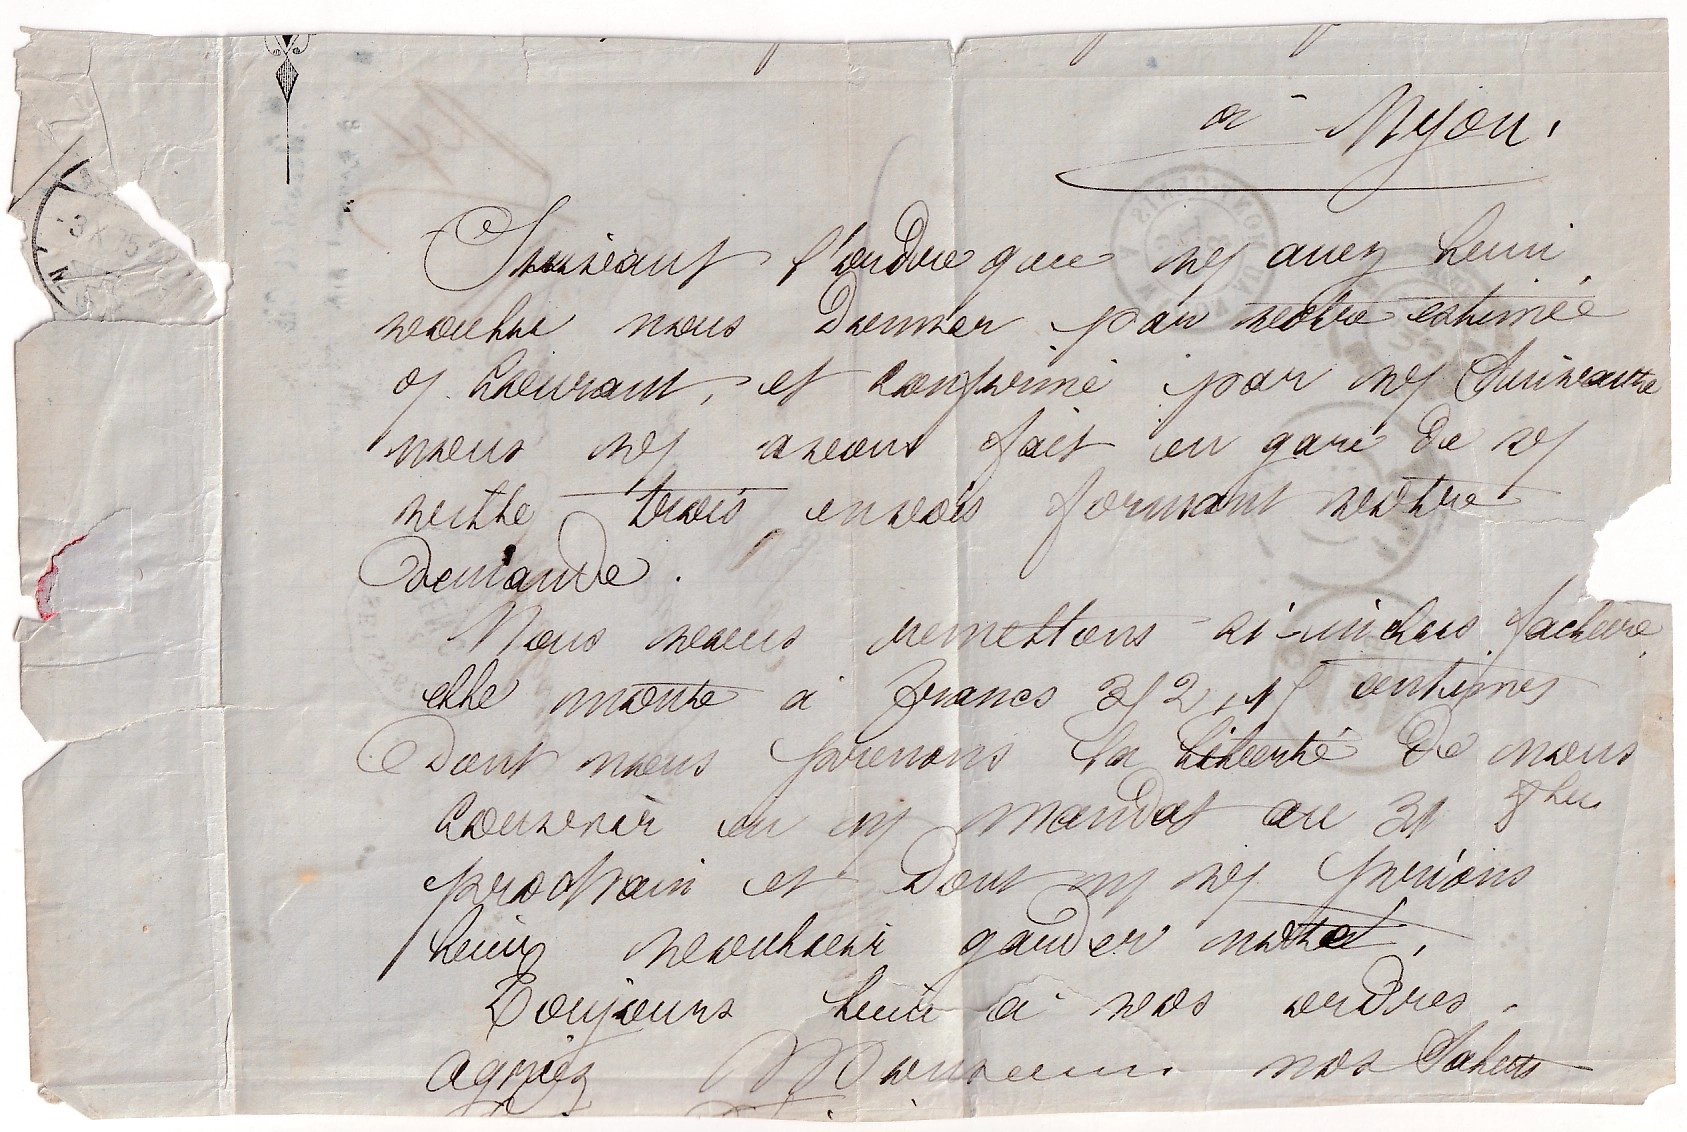 à Nyon.
Suivant l'ordre que vs avez bien
voulu nous donner par votre estimée
ct courant, et confirmé par vs suivante
nous vs avons fait en gare de vs
ville trois envois formant votre
demande.
Nous vous remettons ci-inclus facture
elle monte à francs centimes
dont nous prenons la liberté de nous
couvrir en mandat au 31 8bre
prochain et dont ns vs prions
bien vouloir garder note.
Toujours bien à vos ordres.
agréez Monsieur nos Saluts